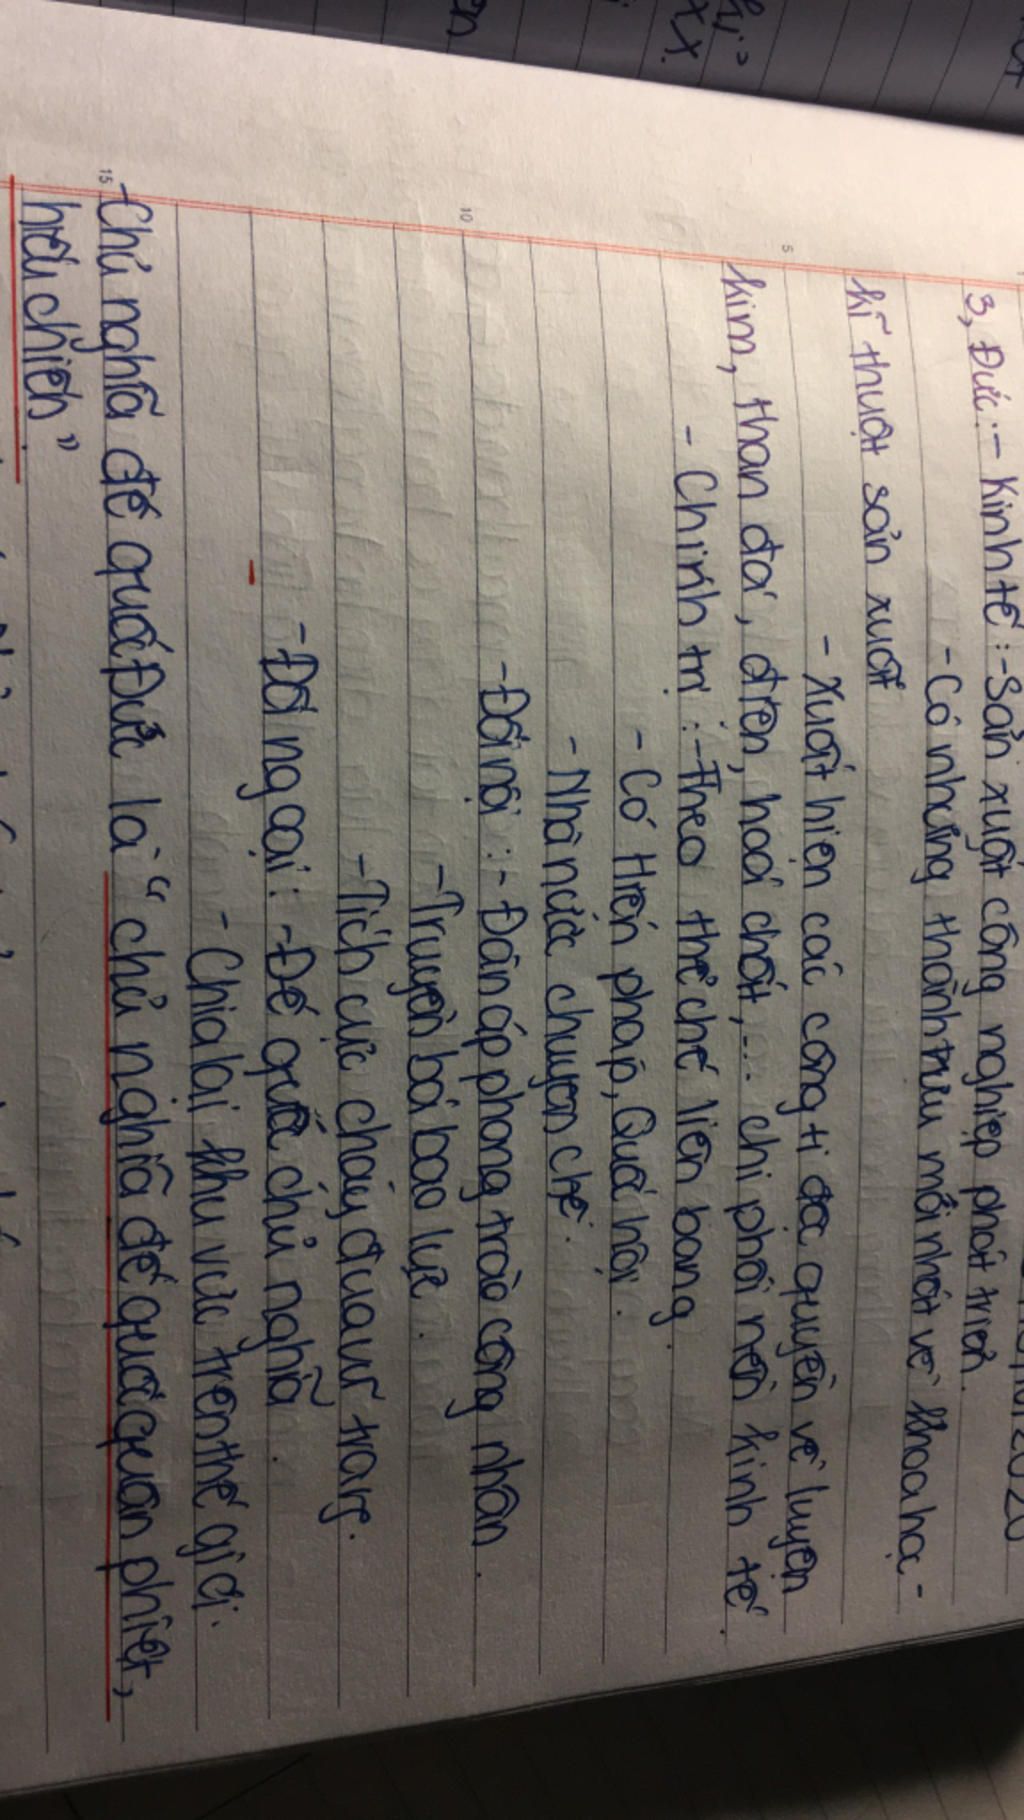 3, Đức: - Kinh tế: - Sản xuất công nghiệp phát triển.
- Có những thành tựu mới nhất về khoa học -
kĩ thuật sản xuất
- Xuất hiện các công ti độc quyền về luyện
kim, than đá, điện, hoá chất,... chi phối nền kinh tế.
- Chính trị: - Theo thể chế liên bang.
- Có Hiến pháp, Quốc hội.
- Nhà nước chuyên chế.
- Đối nội: - Đàn áp phong trào công nhân.
- Truyền bá bạo lực.
- Tích cực chạy đua vũ trang.
- Đối ngoại: - Đế quốc chủ nghĩa.
- Chia lại khu vực trên thế giới.
- Chủ nghĩa đế quốc Đức là "chủ nghĩa đế quốc quân phiệt,
hiếu chiến"
5
10
15